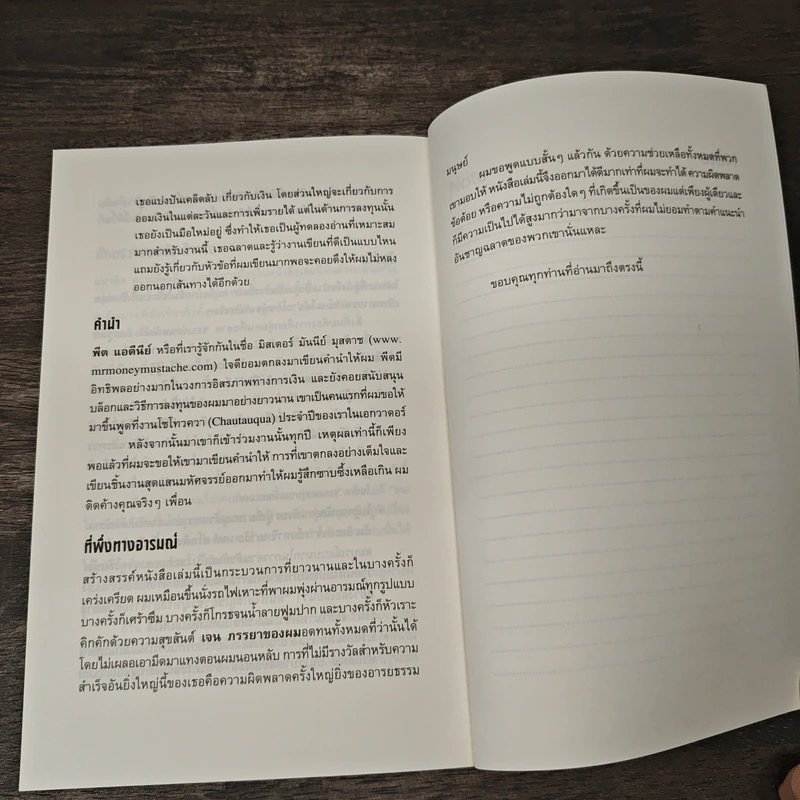 เธอแบ่งปันเคล็ดลับ เกี่ยวกับเงิน โดยส่วนใหญ่จะเกี่ยวกับการ
ออมเงินในแต่ละวันและการเพิ่มรายได้ แต่ในด้านการลงทุนนั้น
เธอยังเป็นมือใหม่อยู่ ซึ่งทำให้เธอเป็นผู้ทดลองอ่านที่เหมาะสม
มากสำหรับงานนี้ เธอฉลาดและรู้ว่างานเขียนที่ดีเป็นแบบไหน
แถมยังรู้เกี่ยวกับหัวข้อที่ผมเขียนมากพอจะคอยดึงให้ผมไม่หลง
ออกนอกเส้นทางได้อีกด้วย
คำนำ
พีต แอดีนีย์ หรือที่เรารู้จักกันในชื่อ มิสเตอร์ มันนีย์ มุสตาช (www.
mrmoneymustache.com) ใจดียอมตกลงมาเขียนคำนำให้ผม พีตมี
อิทธิพลอย่างมากในวงการอิสรภาพทางการเงิน และยังคอยสนับสนุน
บล็อกและวิธีการลงทุนของผมมาอย่างยาวนาน เขาเป็นคนแรกที่ผมขอให้
มาขึ้นพูดที่งานโชโทวควา (Chautauqua) ประจำปีของเราในเอกวาดอร์
หลังจากนั้นมาเขาก็เข้าร่วมงานนั้นทุกปี เหตุผลเท่านี้ก็เพียง
พอแล้วที่ผมจะขอให้เขามาเขียนคำนำให้ การที่เขาตกลงอย่างเต็มใจและ
เขียนชิ้นงานสุดแสนมหัศจรรย์ออกมาทำให้ผมรู้สึกซาบซึ้งเหลือเกิน ผม
ติดค้างคุณจริงๆ เพื่อน
ที่พึ่งทางอารมณ์
สร้างสรรค์หนังสือเล่มนี้เป็นกระบวนการที่ยาวนานและในบางครั้งก็
เคร่งเครียด ผมเหมือนขึ้นนั่งรถไฟเหาะที่พาผมพุ่งผ่านอารมณ์ทุกรูปแบบ
บางครั้งก็เศร้าซึม บางครั้งก็โกรธจนน้ำลายฟูมปาก และบางครั้งก็หัวเราะ
คิกคักด้วยความสุขสันต์ เจน ภรรยาของผมอดทนทั้งหมดที่ว่านั้นได้
โดยไม่เผลอเอามีดมาแทงตอนผมนอนหลับ การที่ไม่มีรางวัลสำหรับความ
สำเร็จอันยิ่งใหญ่นี้ของเธอคือความผิดพลาดครั้งใหญ่ยิ่งของอารยธรรม
มนุษย์
ผมขอพูดแบบสั้นๆ แล้วกัน ด้วยความช่วยเหลือทั้งหมดที่พวก
เขามอบให้ หนังสือเล่มนี้จึงออกมาได้ดีมากเท่าที่ผมจะทำได้ ความผิดพลาด
ข้อด้อย หรือความไม่ถูกต้องใดๆ ที่เกิดขึ้นเป็นของผมแต่เพียงผู้เดียวและ
ก็มีความเป็นไปได้สูงมากว่ามาจากบางครั้งที่ผมไม่ยอมทำตามคำแนะนำ
อันชาญฉลาดของพวกเขานั่นแหละ
ขอบคุณทุกท่านที่อ่านมาถึงตรงนี้